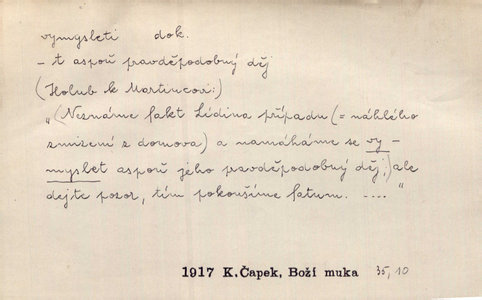 vymysleti dok.
- t aspoň pravděpodobný děj
(Holub k Martincovi:)
„(Neznáme fakt Lidina případu (= náhlého
zmizení z domova) a namáháme se vy-
myslet aspoň jeho pravděpodobný děj;) ale
dejte pozor, tím pokoušíme fatum. ...."
1917 K.Čapek, Boží muka 35,10